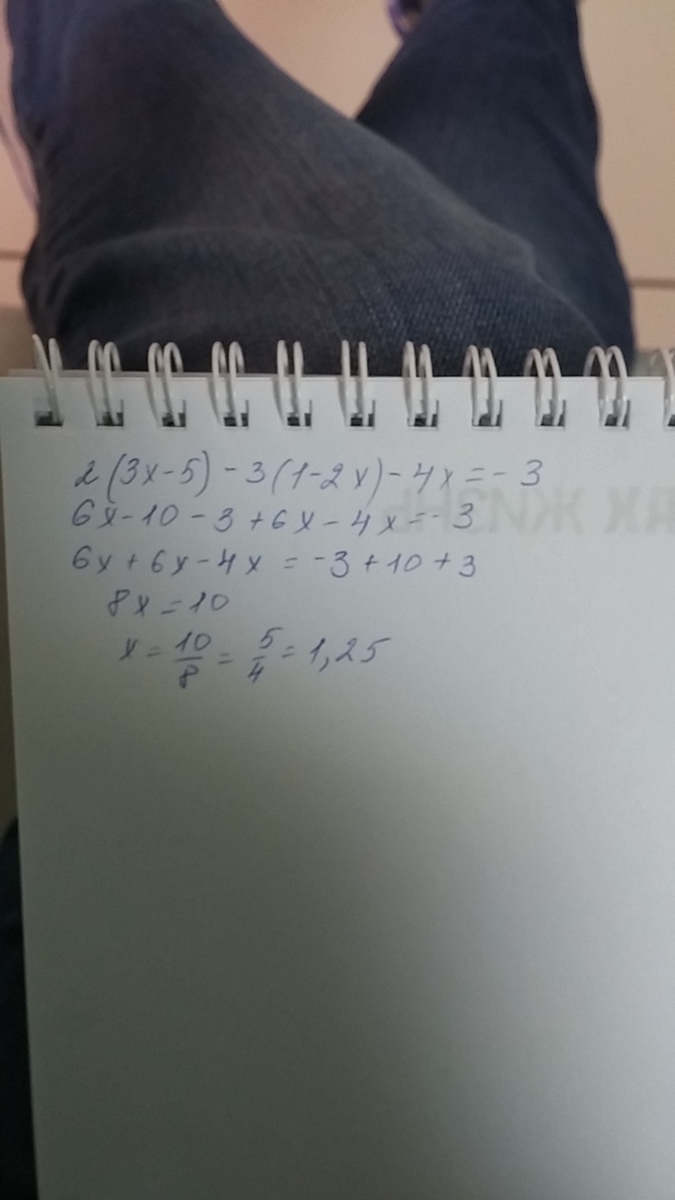 2(3x-5)-3(1-2x)-4x=-3
6x-10-3+6x-4x=-3
6x+6x-4x=-3+10+3
8x=10
x=10/8=5/4=1,25
АХ ЖИЗНЬ